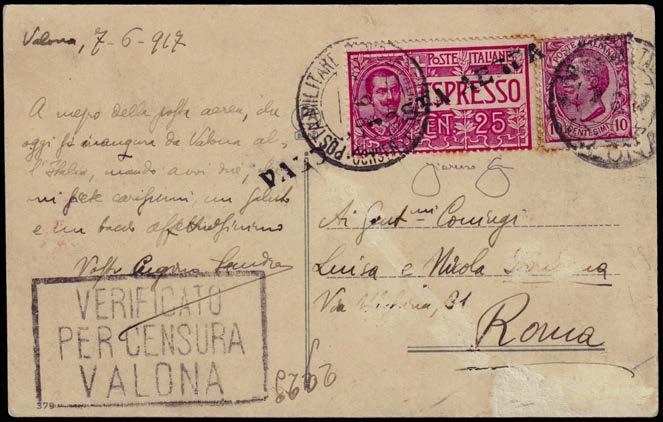 Valona, 7-6-917
A mezzo della posta aerea, che
oggi si inaugura da Valona al-
l'Italia, mando a voi due,
miei carissimi, un saluto
e un bacio affettuosissimo
Vostro
VERIFICATO
PER CENSURA
VALONA
379
POSTE ITALIANE
ESPRESSO
CENT. 25
POSTE ITALIANE
10 10
CENTESIMI
POSTA MILITARE
POSTA AEREA
Ai Gent.mi Coniugi
Luisa e Nicola
Via 31
Roma